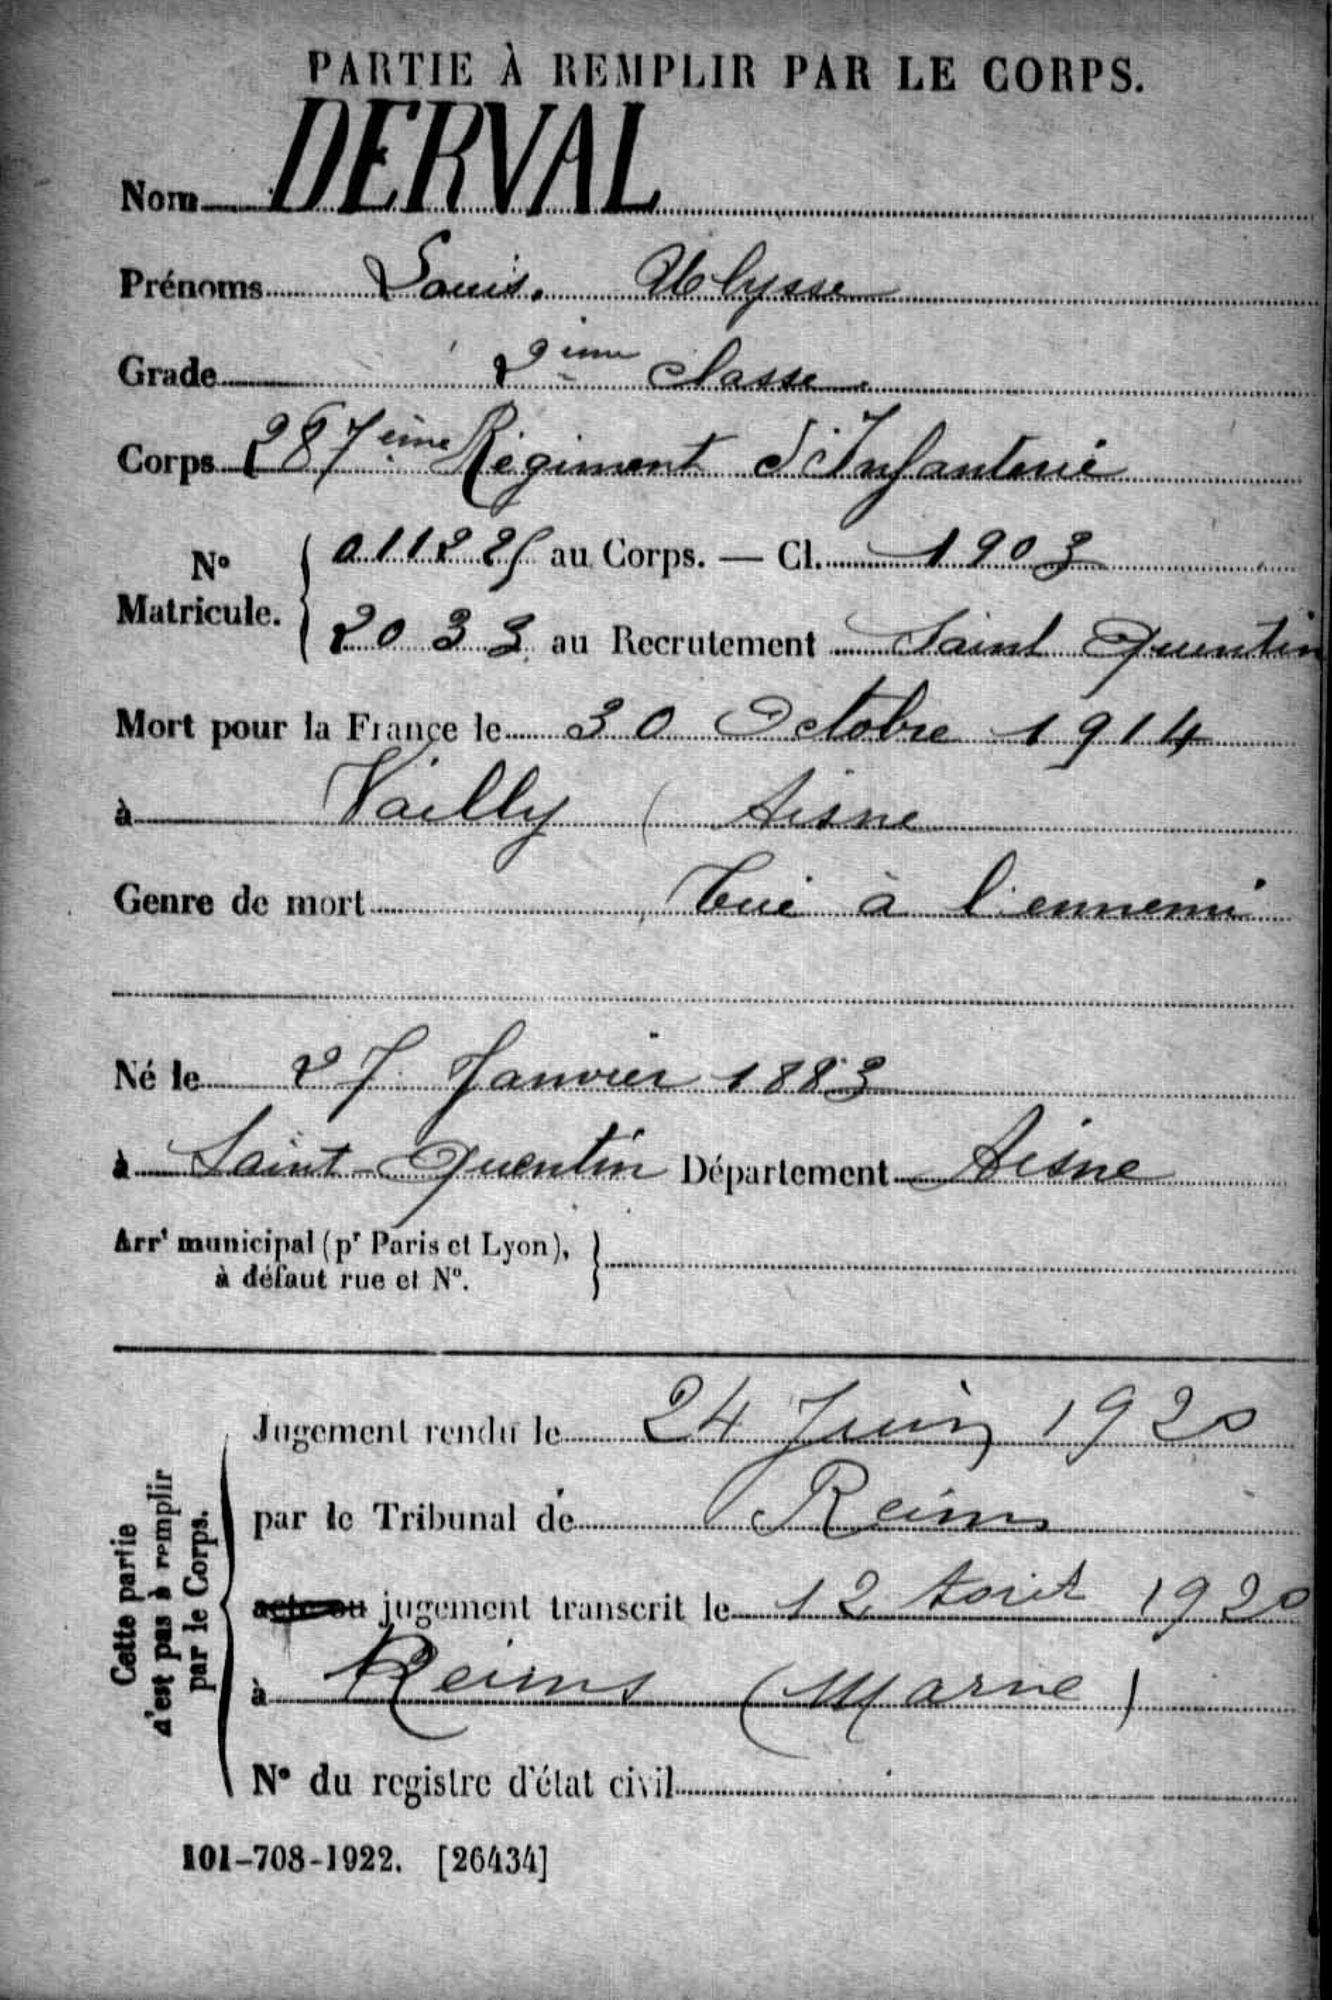 PARTIE À REMPLIR PAR LE CORPS.
Nom DERVAL
Prénoms Louis. Ulysse
Grade 2ème classe
Corps 287ème Régiment d'Infanterie
No Matricule. { 011225 au Corps. — Cl. 1903
2033 au Recrutement Saint Quentin
Mort pour la France le 30 Octobre 1914
à Vailly ( Aisne
Genre de mort Tué à l'ennemi
Né le 27 Janvier 1883
à Saint-Quentin Département Aisne
Arrt municipal (pr Paris et Lyon),
à défaut rue et No. }
Cette partie
n'est pas à remplir
par le Corps.
Jugement rendu le 24 Juin 1920
par le Tribunal de Reims
acte ou jugement transcrit le 12 Août 1920
à Reims (Marne)
No du registre d'état civil
101-708-1922. [26434]